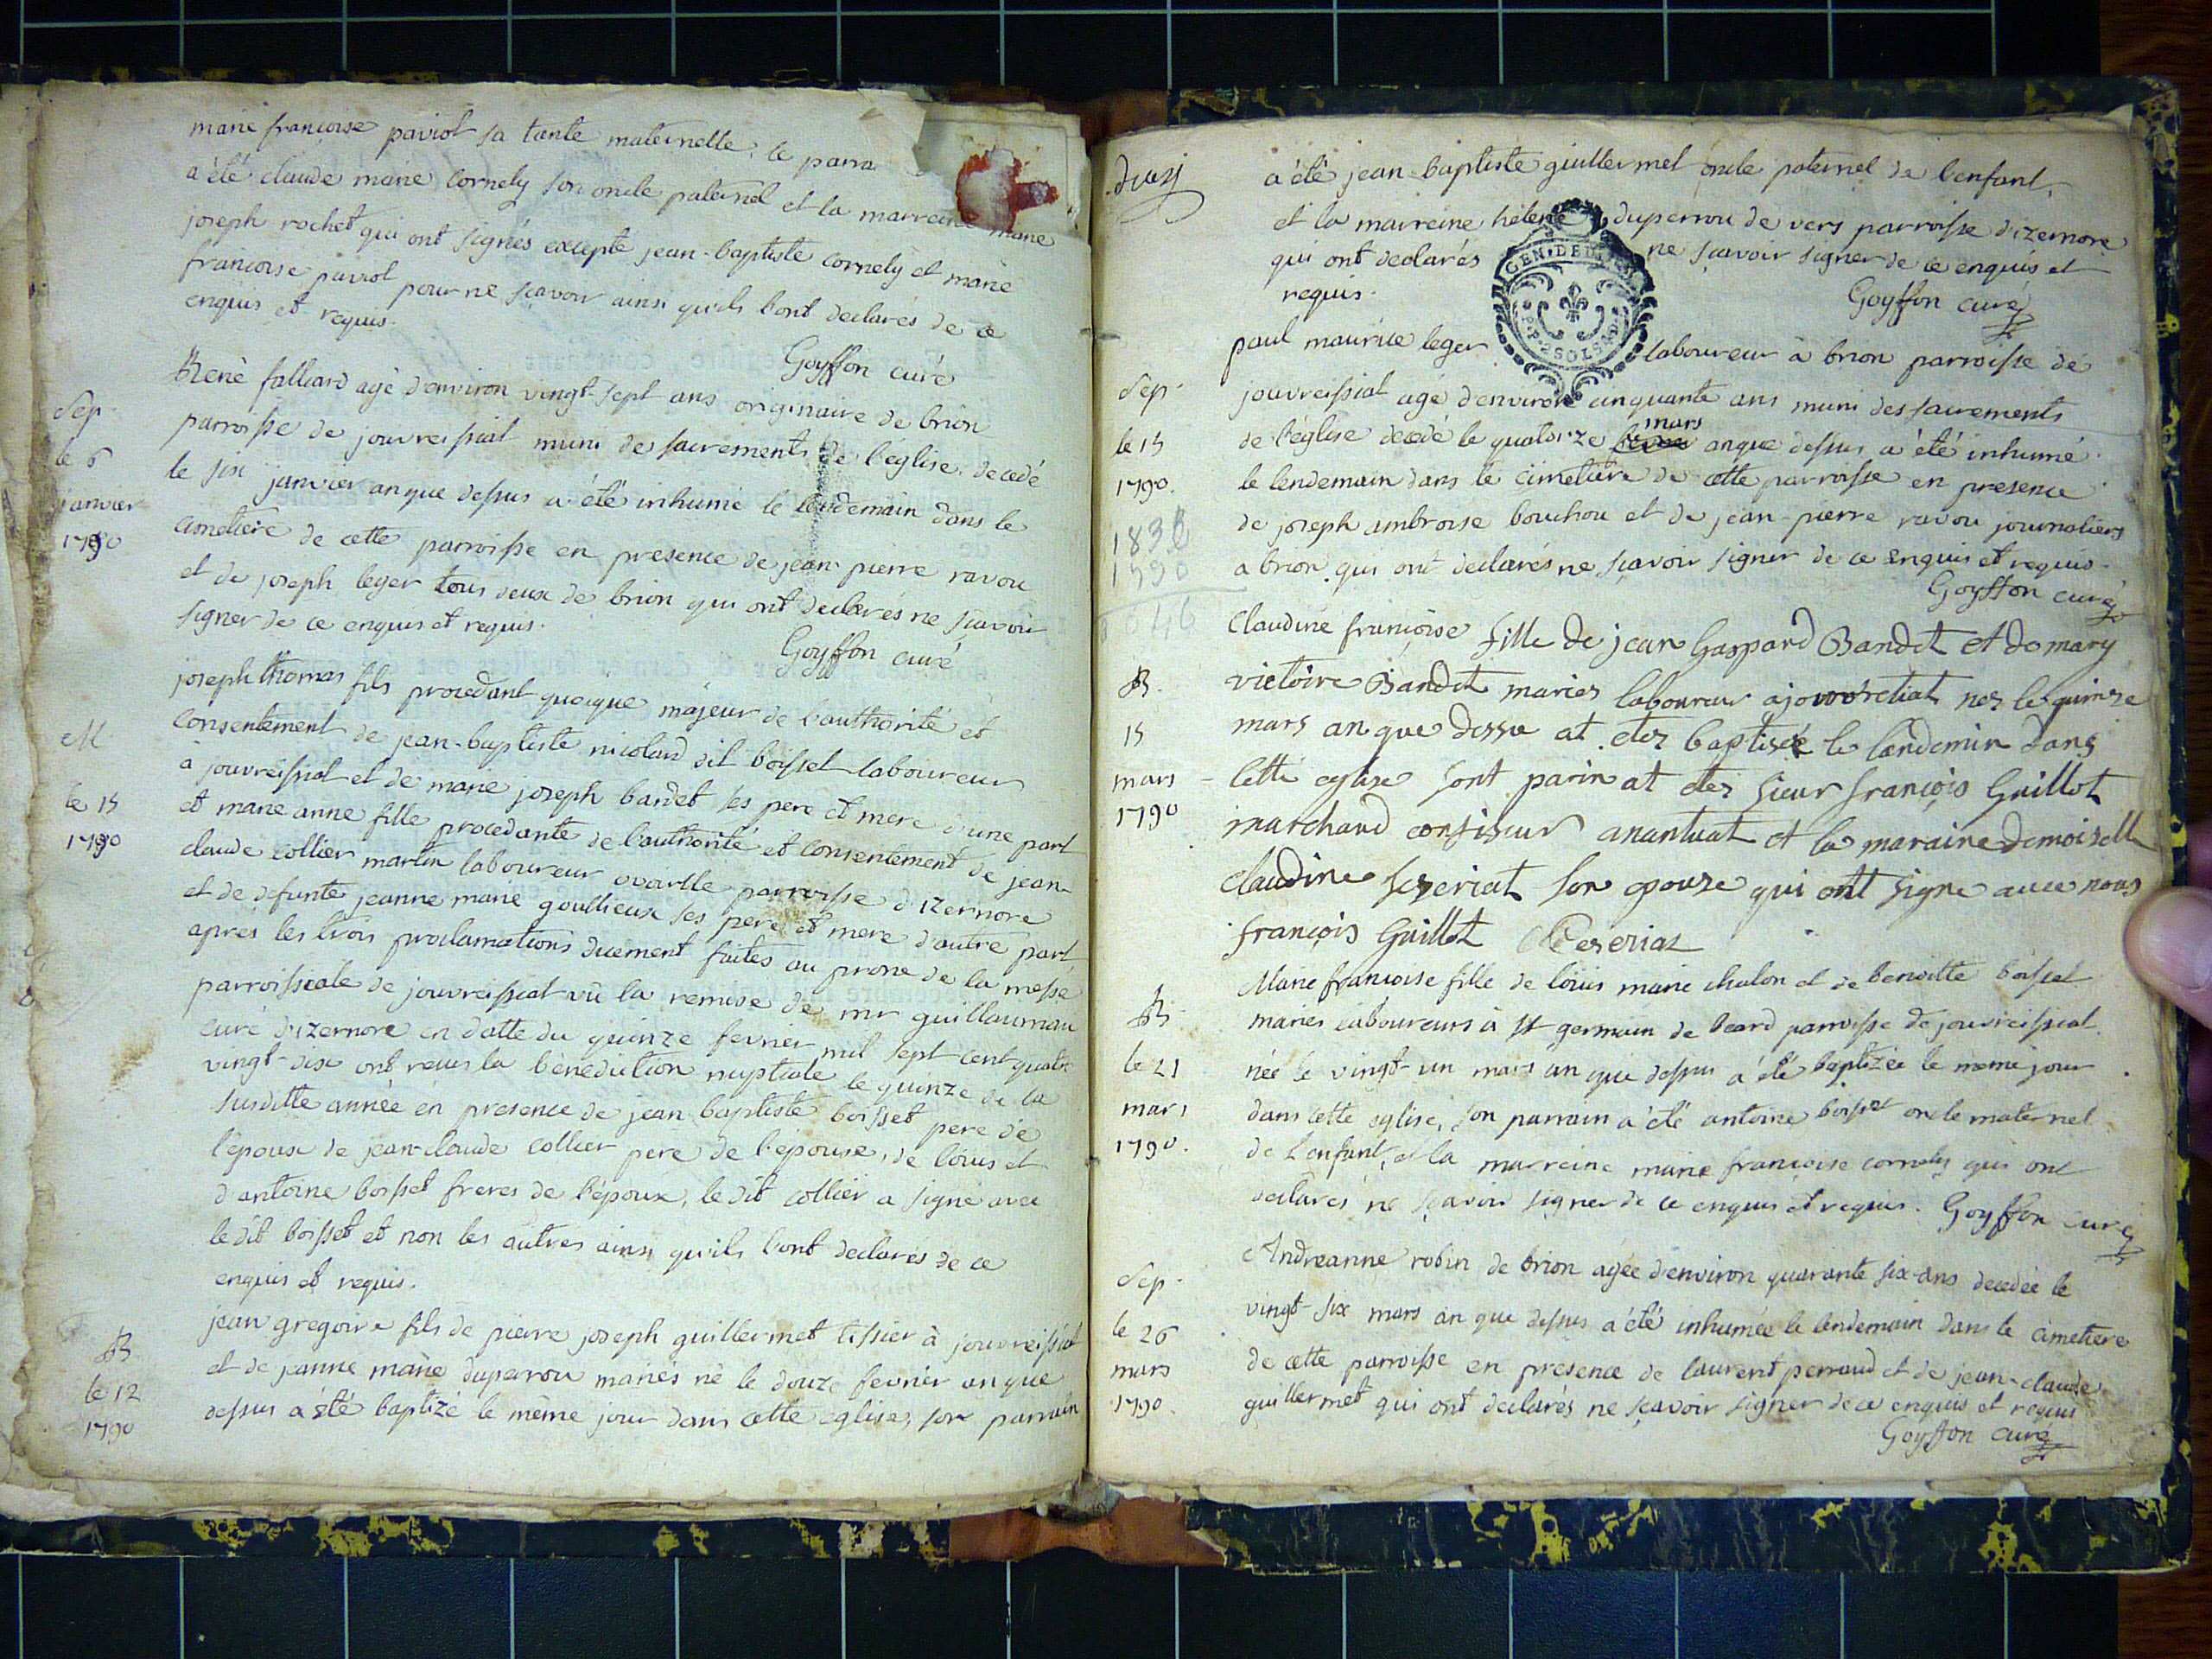 marie françoise paviot sa tante maternelle. le parra
a été claude marie Cornely son oncle paternel et la marreine marie
joseph rochet qui ont signés excepté jean-baptiste cornely et marie
francoise paviot pour ne sçavoir ainsi qu'ils l'ont declarés de ce
enquis et requis.
Goyffon curé
Sep.
le 6
janvier
1790
René falliard agé d'environ vingt-sept ans originaire de brion
parroisse de jouvreissiat muni de sacrements de l'église. decedé
le six janvier an que dessus a été inhumé le lendemain dans le
cimetiere de cette parroisse en presence de jean-pierre ravou
et de joseph leger tous deux de brion qui ont declarés ne sçavoir
signer de ce enquis et requis.
Goyffon curé
M
le 15
1790
joseph thomas fils procedant quoique majeur de l'authorité et
consentement de jean-baptiste nicoland dit boisset laboureur
à jouvreissiat et de marie joseph bandet ses pere et mere d'une part
et marie anne fille procedante de l'authorité et consentement de jean-
claude collier martin laboureur parroisse d'izernore
et de defunte jeanne marie goullieux ses pere et mere d'autre part
aprés les trois proclamations duement faites au prone de la messe
parroissiale de jouvreissiat vû la remise de mr guillaumau
curé d'izernore en datte du quinze fevrier mil sept cent quatre
vingt-dix ont reçus la bénédiction nuptiale le quinze de la
susditte année en presence de jean-baptiste boisset pere de
l'époux de jean-claude collier pere de l'épouse, de louis et
d'antoine boisset freres de l'époux, le dit collier a signé avec
le dit boisset et non les autres ainsi qu'ils l'ont declarés de ce
enquis et requis.
B
le 12
1790
jean gregoire fils de pierre joseph guillermet tissier à jouvreissiat
et de jeanne marie duperrou mariés né le douze fevrier an que
dessus a été baptizé le même jour dans cette eglise, son parrain
a été jean-baptiste guillermet oncle paternel de l'enfant,
et la marreine helene duperrou de vers parroisse d'izernore
qui ont declarés ne sçavoir signer de ce enquis et
requis.
Goyffon curé
GEN. DE
SOLS
Sep.
le 15
1790.
paul maurice leger laboureur à brion parroisse de
jouvreissiat agé d'environ cinquante ans muni des sacrements
mars
de l'église decedé le quatorze an que dessus a été inhumé
le lendemain dans le cimetiere de cette parroisse en presence
de joseph ambroise bouchou et de jean-pierre ravou journaliers
a brion qui ont declarés ne sçavoir signer de ce enquis et requis.
Goyffon curé
B.
15
mars
1790
Claudine françoise fille de jean Gaspard Bandet et de mary
victoire Bandet maries laboureur a nez le quinze
mars an que dessu at etez baptisée le landemin dans
cette eglise sont parin at etez sieur françois Guillot
marchand confiseur anantuat et la maraine demoiselle
claudine seseriat son epouze qui ont signe avec nous
françois Guillot Ceseriat
B
le 21
mars
1790.
Marie francoise fille de louis marie chalon et de benoitte boisset
mariés laboureurs à st germain de beard parroisse de jouvreissiat.
née le vingt-un mars an que dessus a été baptizée le meme jour
dans cette eglise, son parrain a été antoine boisset oncle maternel
de l'enfant, et la marreine marie françoise cornely qui ont
declarés ne sçavoir signer de ce enquis et requis. Goyffon curé
Sep.
le 26
mars
1790.
Andreanne robin de brion agée d'environ quarante six-ans decedée le
vingt-six mars an que dessus a été inhumée le lendemain dans le cimetiere
de cette parroisse en presence de laurent perraud et de jean-claude
guillermet qui ont declarés ne sçavoir signer de ce enquis et requis
Goyffon curé